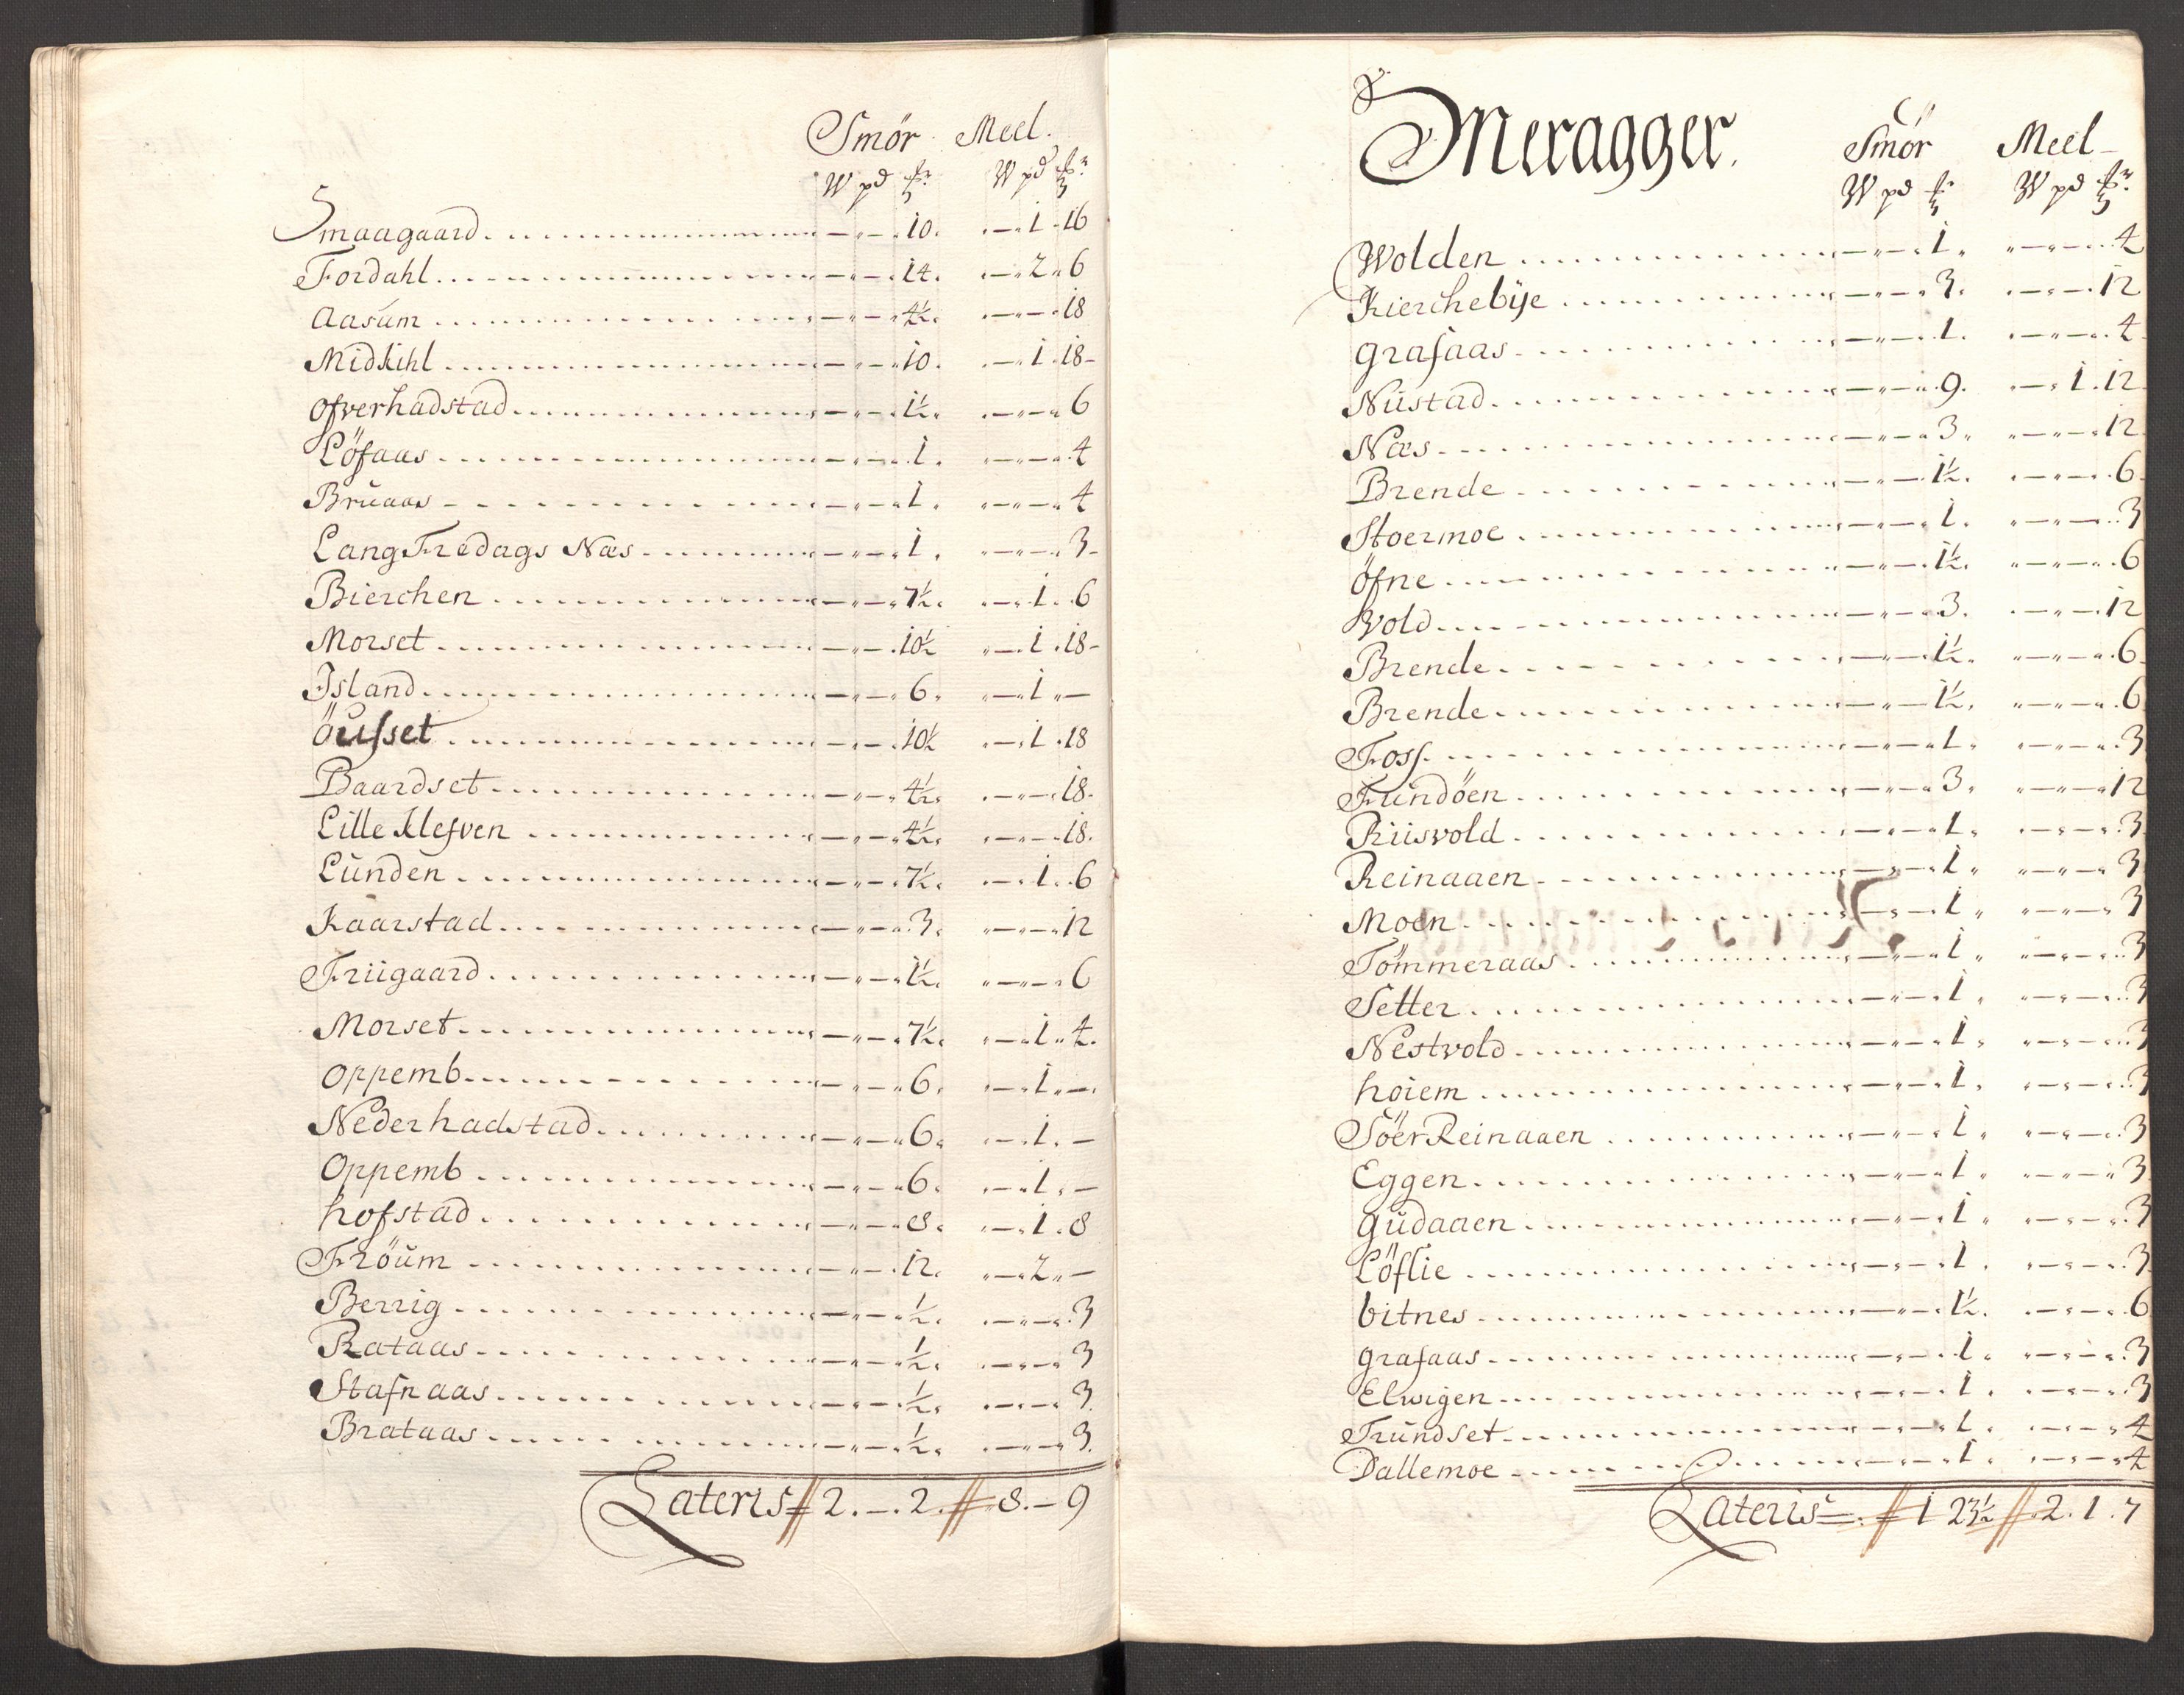 Smör Meel.
W pd W pd
Smaagaard 10. 1 16
Fordahl 14. 2 6
Aasum 4½ 18
Midkihl 10. 1 18
Ofverhadstad 1½ 6
Löfaas 1. 4
Bruaas 1. 4
Lang Fredags Næs 1. 3
Bierchen 7½ 1 6
Morset 10½ 1 18
Island 6. 1 —
Öusset 10½ 1 18
Baardset 4½ 18
Lille Klefven 4½ 18.
Lunden 7½ 1 6
Kaarstad 3. 12
Friigaard 1½ 6
Morset 7½ 1 4
Oppemb 6. 1 —
Nederhadstad 6. 1. —
Oppemb 6. 1. —
hofstad 8. 1. 8
Fröum 12. 2 —
Berrig ½ 3
Rataas ½ 3
Stafnaas ½ 3
Brataas ½ 3.
Lateris 2. — . 2. 8. — 9
Meragger. Smör Meel
W pd W pd
Wolden 1. 4
Kierchebÿe 3. 12
Grafaas 1. 4
Nustad 9. 1. 12
Næs 3. 12
Brende 1½ 6
Stoermoe 1. 3
Öfne 1½ 6
Vold 3. 12
Brende 1½ 6
Brende 1½ 6
Foss 1. 3
Fundöen 3. 12
Riisvold 1. 3
Reinaaen 1. 3
Moen 1. 3
Tömmeraas 1. 3
Setter 1. 3
Nestvold 1. 3
hoiem 1. 3
Söer Reinaaen 1. 3
Eggen 1. 3
Gudaaen 1. 3
Löflie 1. 3
bitnes 1½ 6
grafaas 1. 3
Elwigen 1. 3
Trundset 1. 4
Dallemoe 1. 4
Lateris 1 23½ 2. 1. 7